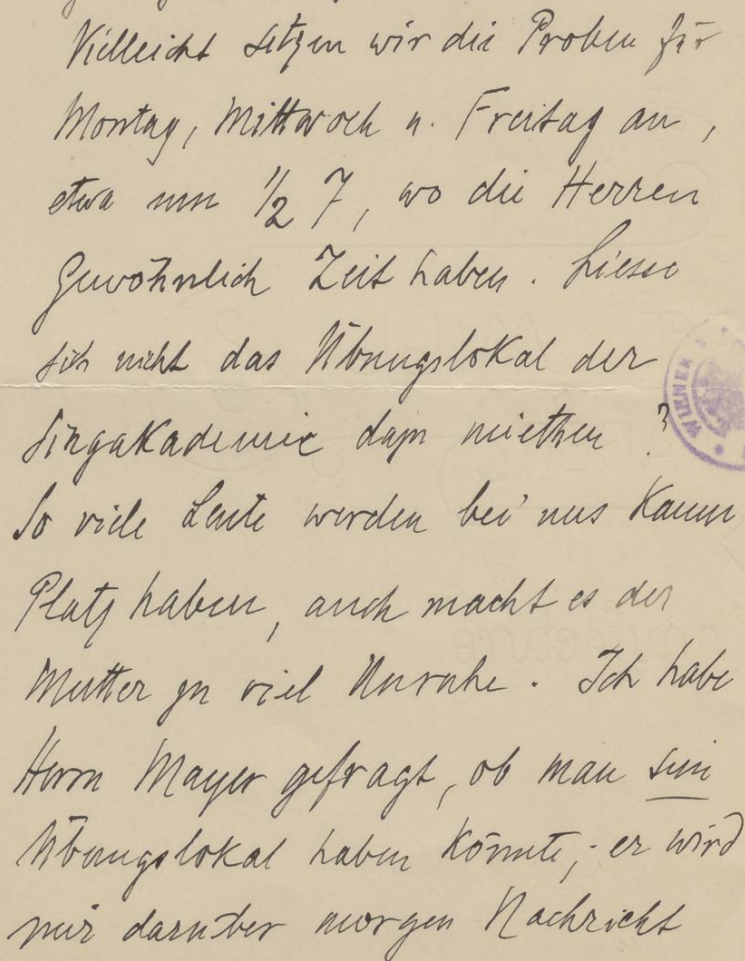 Vielleicht setzen wir die Proben für
Montag, Mittwoch u. Freitag an,
etwa um 1/2 7, wo die Herren
gewöhnlich Zeit haben. Liesse
sich nicht das Übungslokal der
Singakademie dazu miethen?
So viele Leute werden bei uns kaum
Platz haben, auch macht es der
Mutter zu viel Unruhe. Ich habe
Herrn Mayer gefragt, ob man sein
Übungslokal haben könnte; er wird
mir darüber morgen Nachricht
WIENER